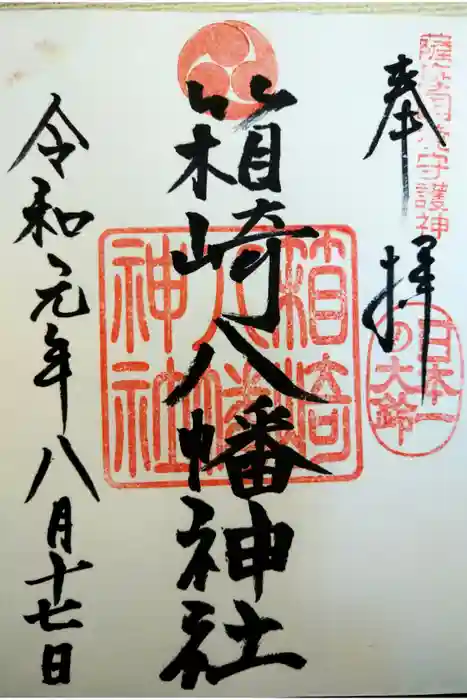 奉拝
薩摩國出水守護神
日本一
の大鈴
箱崎八幡神社
箱崎
八幡
神社
令和元年八月十七日